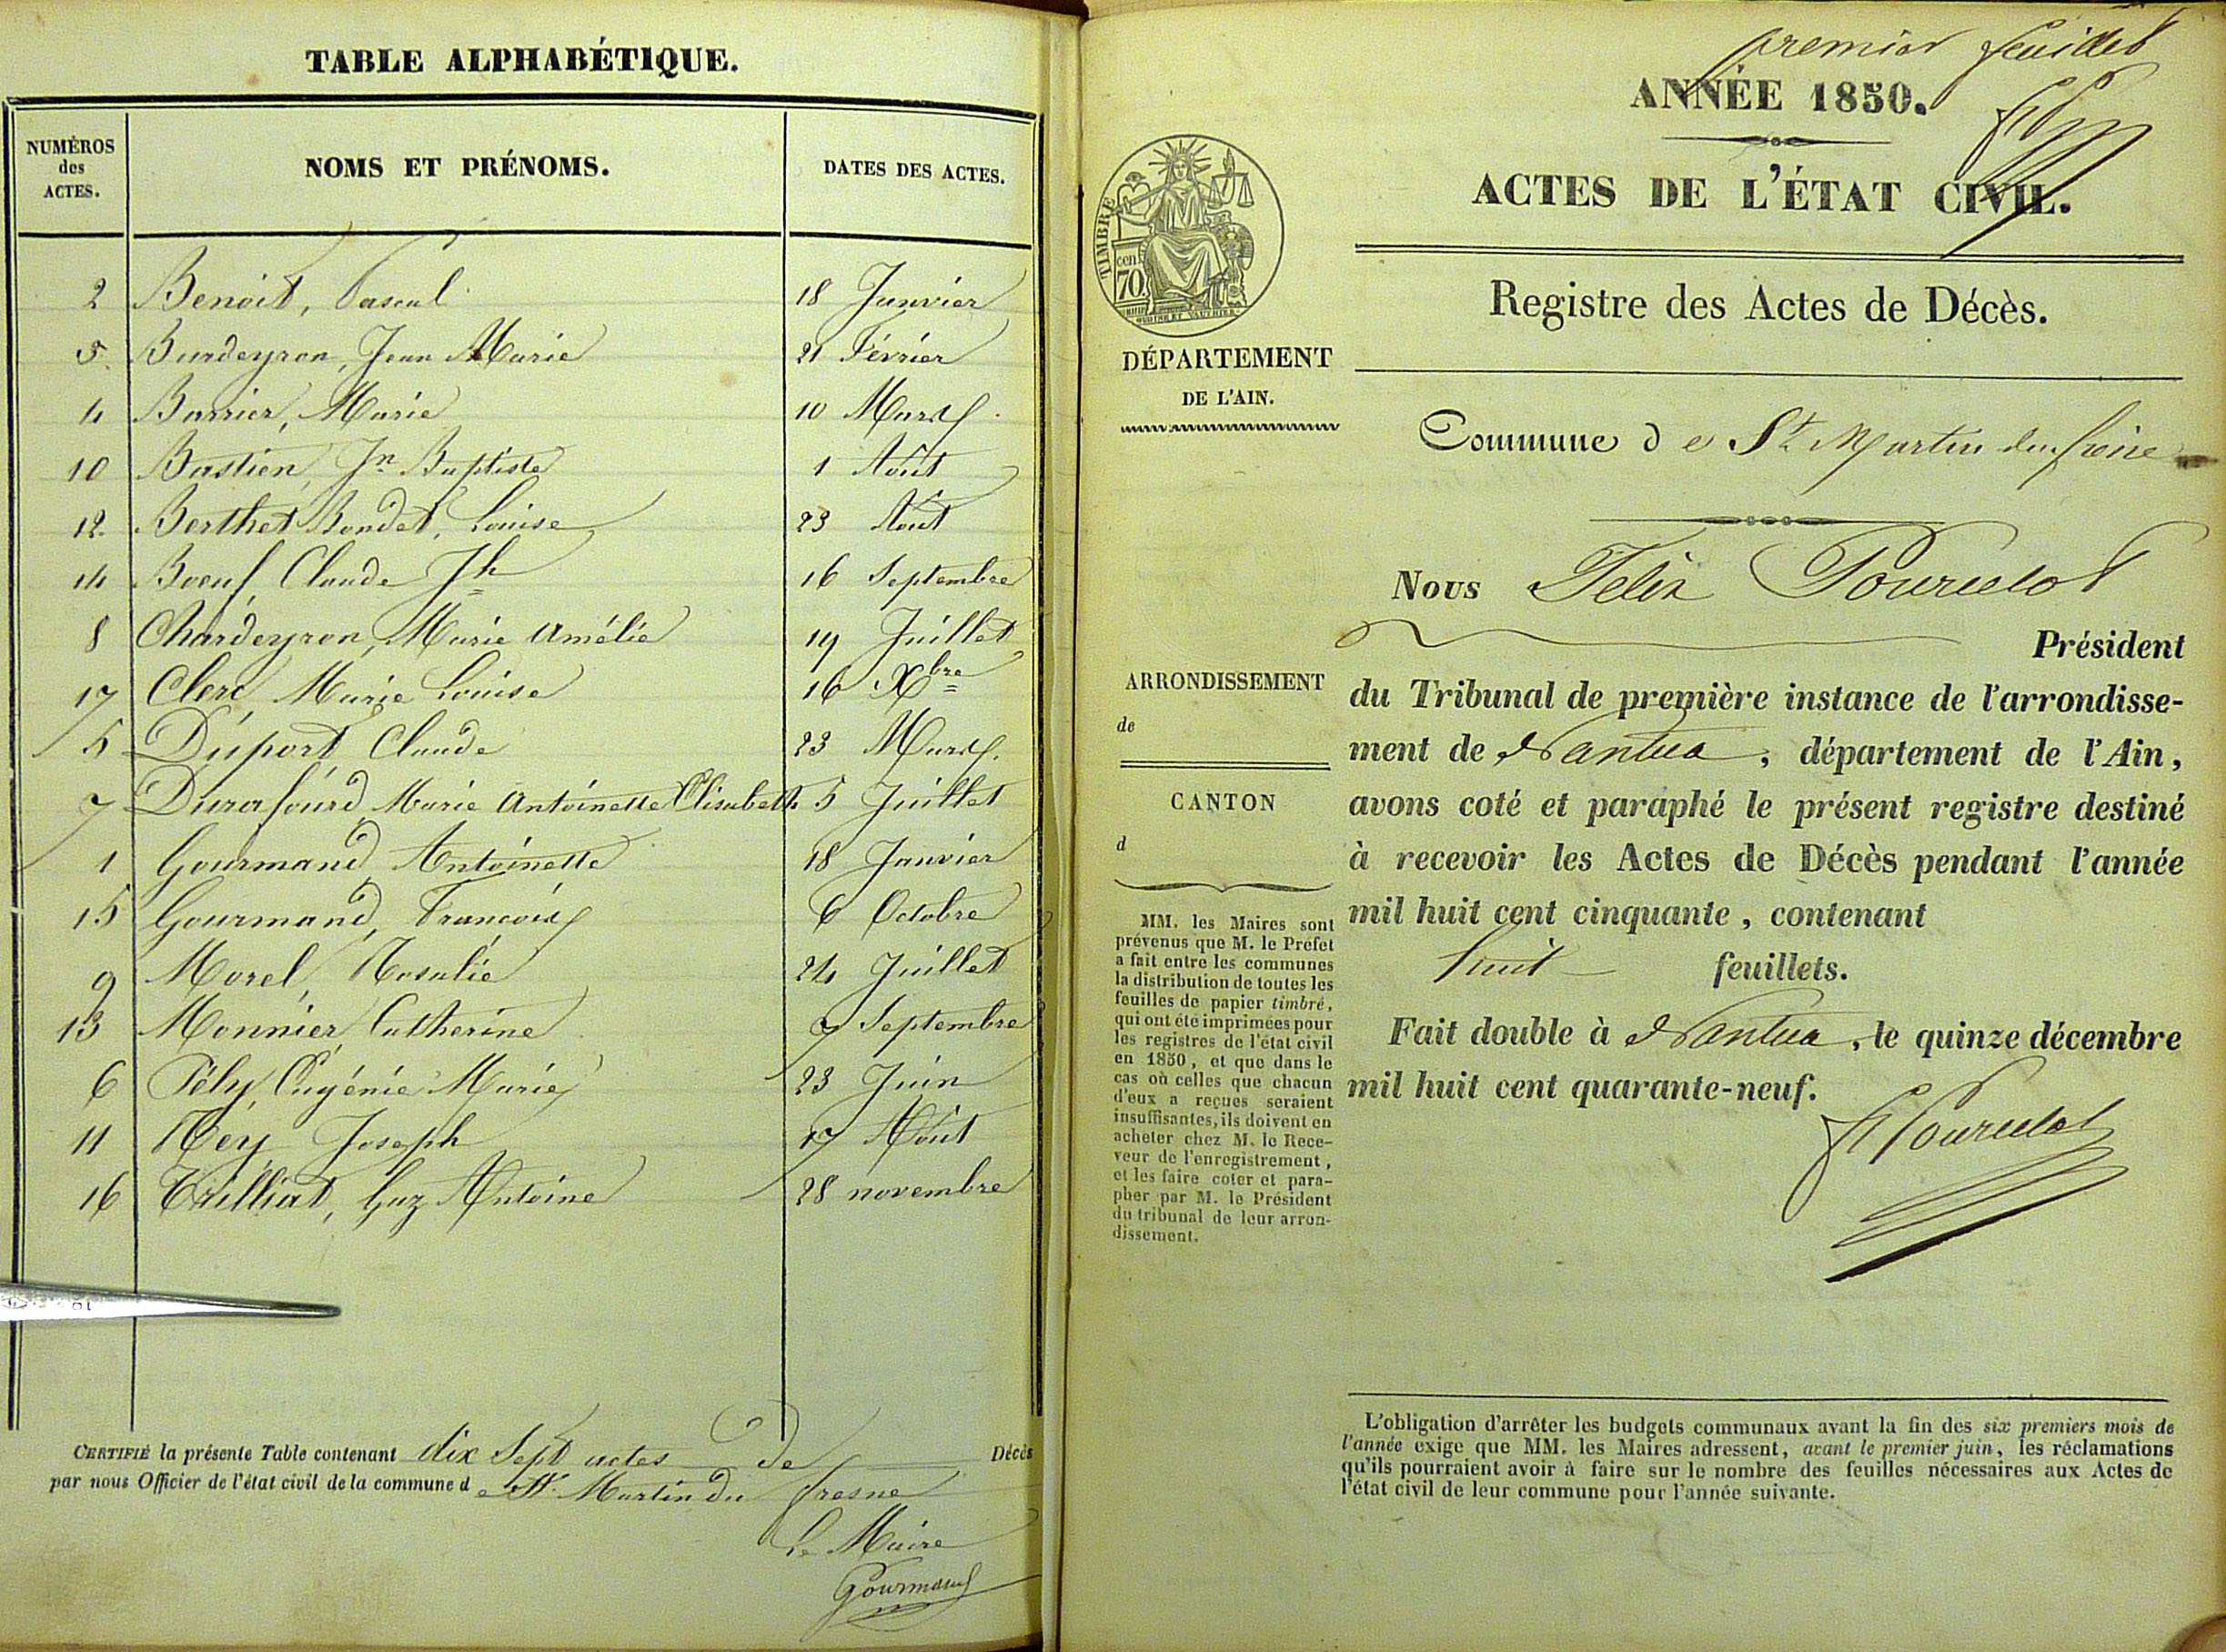 TABLE ALPHABÉTIQUE.
NUMÉROS des ACTES.
NOMS ET PRÉNOMS.
DATES DES ACTES.
2 Benoit, Pascal 18 Janvier
3. Burdeyron, Jean Marie 21 Février
4 Barrier, Marie 10 Mars
10 Bastien, Jn Baptiste 1 Aout
12. Berthet Bondet, Louise 23 Aout
14 Boeuf, Claude Jh 16 Septembre
8 Chardeyron, Marie Amélie 19 Juillet
17 Clerc, Marie Louise 16 Xbre
5 Duport, Claude 23 Mars.
7 Durafourd, Marie Antoinette Elisabeth 5 Juillet
1 Gourmand, Antoinette 18 Janvier
15 Gourmand, François 6 Octobre
9 Morel, Rosalie 24 Juillet
13 Monnier, Catherine 7 Septembre
6 Pély, Eugénie Marie 23 Juin
11 Rey, Joseph 17 Août
16 Trilliat, Guy Antoine 28 novembre
CERTIFIÉ la présente Table contenant dix Sept actes de Décès
par nous Officier de l'état civil de la commune d e St. Martin du fresne
Le Maire
Gourmand
premier feuillet
ANNÉE 1850.
ACTES DE L'ÉTAT CIVIL.
TIMBRE
70 cen
Registre des Actes de Décès.
DÉPARTEMENT
DE L'AIN.
Commune d e St Martin du freine
Nous Felix Pourcelot
Président
ARRONDISSEMENT
de
CANTON
d
du Tribunal de première instance de l'arrondisse-
ment de Nantua, département de l'Ain,
avons coté et paraphé le présent registre destiné
à recevoir les Actes de Décès pendant l'année
mil huit cent cinquante, contenant
huit feuillets.
Fait double à Nantua, le quinze décembre
mil huit cent quarante-neuf.
F Pourcelot
MM. les Maires sont
prévenus que M. le Préfet
a fait entre les communes
la distribution de toutes les
feuilles de papier timbré,
qui ont été imprimées pour
les registres de l'état civil
en 1850, et que dans le
cas où celles que chacun
d'eux a reçues seraient
insuffisantes, ils doivent en
acheter chez M. le Rece-
veur de l'enregistrement,
et les faire coter et para-
pher par M. le Président
du tribunal de leur arron-
dissement.
L'obligation d'arrêter les budgets communaux avant la fin des six premiers mois de
l'année exige que MM. les Maires adressent, avant le premier juin, les réclamations
qu'ils pourraient avoir à faire sur le nombre des feuilles nécessaires aux Actes de
l'état civil de leur commune pour l'année suivante.